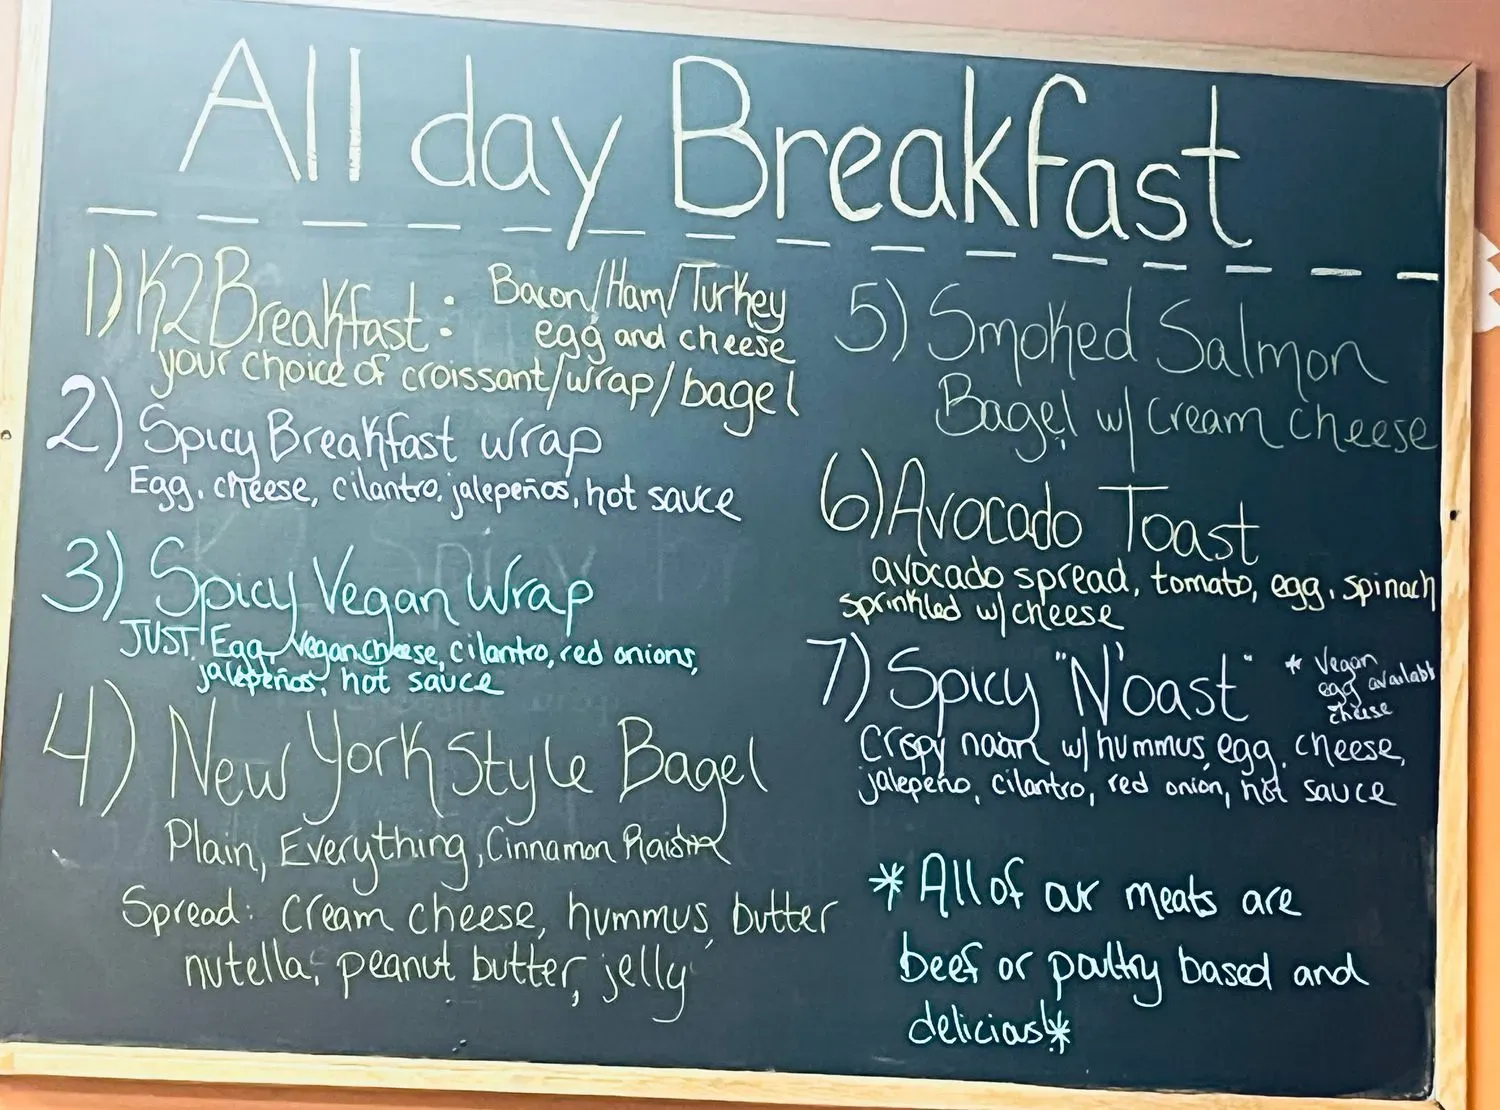 All day Breakfast
1) K2 Breakfast: Bacon/Ham/Turkey
egg and cheese
your choice of croissant/wrap/bagel
2) Spicy Breakfast wrap
Egg, cheese, cilantro, jalepeños, hot sauce
3) Spicy Vegan Wrap
JUST Egg, Vegan cheese, cilantro, red onions,
jalepeños, hot sauce
4) New York Style Bagel
Plain, Everything, Cinnamon Raisin
Spread: cream cheese, hummus, butter
nutella, peanut butter, jelly
5) Smoked Salmon
Bagel w/ cream cheese
6) Avocado Toast
avocado spread, tomato, egg, spinach
sprinkled w/ cheese
7) Spicy "N'oast"
* Vegan
egg available
cheese
Crispy naan w/ hummus, egg, cheese,
jalepeño, cilantro, red onion, hot sauce
* All of our meats are
beef or poultry based and
delicious!*